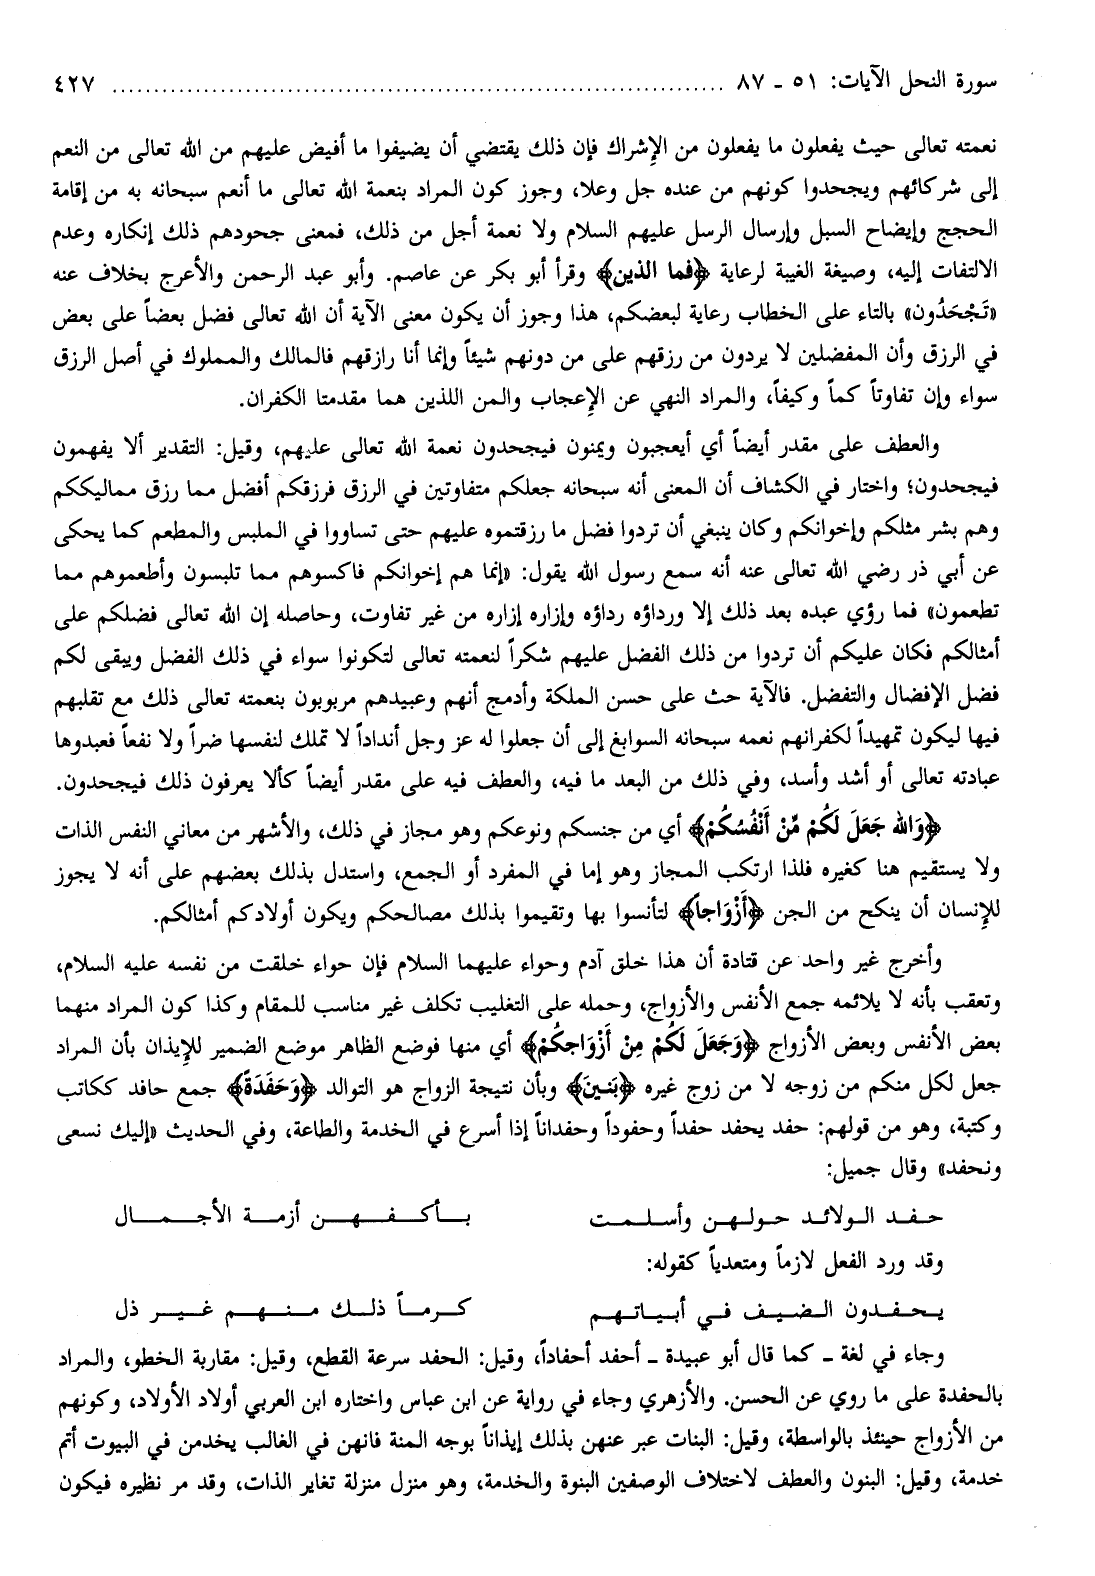 سورة النحل الآيات: ٥١ ـ ٨٧ ........................................................................ ٤٢٧
نعمته تعالى حيث يفعلون ما يفعلون من الإشراك فإن ذلك يقتضي أن يضيفوا ما أفيض عليهم من الله تعالى من النعم
إلى شركائهم ويجحدوا كونهم من عنده جل وعلا، وجوز كون المراد بنعمة الله تعالى ما أنعم سبحانه به من إقامة
الحجج وإيضاح السبل وإرسال الرسل عليهم السلام ولا نعمة أجل من ذلك، فمعنى جحودهم ذلك إنكاره وعدم
الالتفات إليه، وصيغة الغيبة لرعاية ﴿فما الذين﴾ وقرأ أبو بكر عن عاصم. وأبو عبد الرحمن والأعرج بخلاف عنه
«تَجْحَدُون» بالتاء على الخطاب رعاية لبعضكم، هذا وجوز أن يكون معنى الآية أن الله تعالى فضل بعضاً على بعض
في الرزق وأن المفضلين لا يردون من رزقهم على من دونهم شيئاً وإنما أنا رازقهم فالمالك والمملوك في أصل الرزق
سواء وإن تفاوتاً كماً وكيفاً، والمراد النهي عن الإعجاب والمن اللذين هما مقدمتا الكفران.
والعطف على مقدر أيضاً أي أيعجبون ويمنون فيجحدون نعمة الله تعالى عليهم، وقيل: التقدير ألا يفهمون
فيجحدون؛ واختار في الكشاف أن المعنى أنه سبحانه جعلكم متفاوتين في الرزق فرزقكم أفضل مما رزق مماليككم
وهم بشر مثلكم وإخوانكم وكان ينبغي أن تردوا فضل ما رزقتموه عليهم حتى تساووا في الملبس والمطعم كما يحكى
عن أبي ذر رضي الله تعالى عنه أنه سمع رسول الله يقول: «إنما هم إخوانكم فاكسوهم مما تلبسون وأطعموهم مما
تطعمون» فما رؤي عبده بعد ذلك إلا ورداؤه رداؤه وإزاره إزاره من غير تفاوت، وحاصله إن الله تعالى فضلكم على
أمثالكم فكان عليكم أن تردوا من ذلك الفضل عليهم شكراً لنعمته تعالى لتكونوا سواء في ذلك الفضل ويبقى لكم
فضل الإفضال والتفضل. فالآية حث على حسن الملكة وأدمج أنهم وعبيدهم مربوبون بنعمته تعالى ذلك مع تقلبهم
فيها ليكون تمهيداً لكفرانهم نعمه سبحانه السوابغ إلى أن جعلوا له عز وجل أنداداً لا تملك لنفسها ضراً ولا نفعاً فعبدوها
عبادته تعالى أو أشد وأسد، وفي ذلك من البعد ما فيه، والعطف فيه على مقدر أيضاً كألا يعرفون ذلك فيجحدون.
﴿وَالله جَعَلَ لَكُمْ مِّنْ أَنْفُسُكُمْ﴾ أي من جنسكم ونوعكم وهو مجاز في ذلك، والأشهر من معاني النفس الذات
ولا يستقيم هنا كغيره فلذا ارتكب المجاز وهو إما في المفرد أو الجمع، واستدل بذلك بعضهم على أنه لا يجوز
للإنسان أن ينكح من الجن ﴿أَزْوَاجاً﴾ لتأنسوا بها وتقيموا بذلك مصالحكم ويكون أولادكم أمثالكم.
وأخرج غير واحد عن قتادة أن هذا خلق آدم وحواء عليهما السلام فإن حواء خلقت من نفسه عليه السلام،
وتعقب بأنه لا يلائمه جمع الأنفس والأزواج، وحمله على التغليب تكلف غير مناسب للمقام وكذا كون المراد منهما
بعض الأنفس وبعض الأزواج ﴿وَجَعَلَ لَكُمْ مِنْ أَزْوَاجكُمْ﴾ أي منها فوضع الظاهر موضع الضمير للإيذان بأن المراد
جعل لكل منكم من زوجه لا من زوج غيره ﴿بَنينَ﴾ وبأن نتيجة الزواج هو التوالد ﴿وَحَفَدَةً﴾ جمع حافد ككاتب
وكتبة، وهو من قولهم: حفد يحفد حفداً وحفوداً وحفداناً إذا أسرع في الخدمة والطاعة، وفي الحديث «إليك نسعى
ونحفد» وقال جميل:
حفد الولائد حولهن وأسلمت بأكفهن أزمة الأجمال
وقد ورد الفعل لازماً ومتعدياً كقوله:
يحفدون الضيف في أبياتهم كرماً ذلك منهم غير ذل
وجاء في لغة ـ كما قال أبو عبيدة ـ أحفد أحفاداً، وقيل: الحفد سرعة القطع، وقيل: مقاربة الخطو، والمراد
بالحفدة على ما روي عن الحسن. والأزهري وجاء في رواية عن ابن عباس واختاره ابن العربي أولاد الأولاد، وكونهم
من الأزواج حينئذ بالواسطة، وقيل: البنات عبر عنهن بذلك إيذاناً بوجه المنة فانهن في الغالب يخدمن في البيوت أتم
خدمة، وقيل: البنون والعطف لاختلاف الوصفين البنوة والخدمة، وهو منزل منزلة تغاير الذات، وقد مر نظيره فيكون